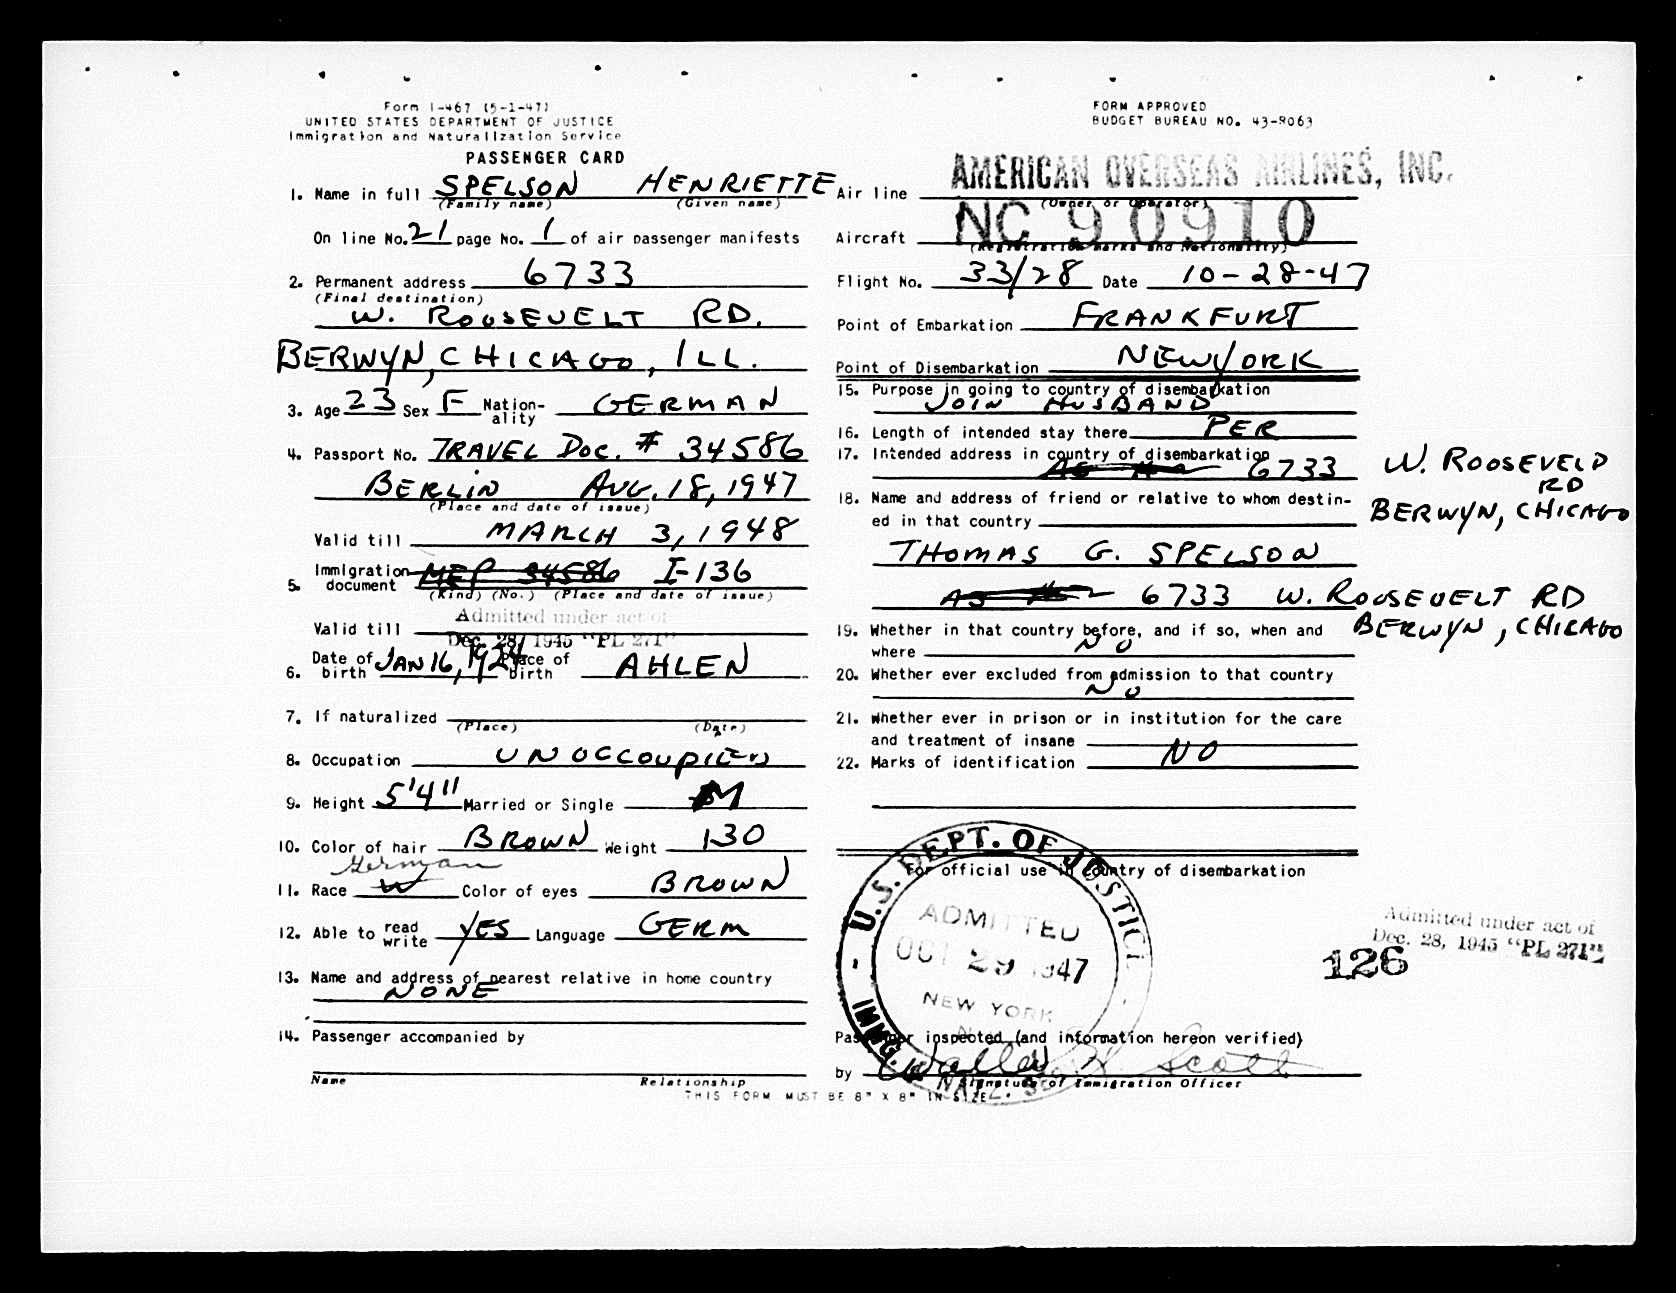 Form I-467 (5-1-47)
UNITED STATES DEPARTMENT OF JUSTICE
Immigration and Naturalization Service
PASSENGER CARD
1. Name in full SPELSON HENRIETTE
(Family name) (Given name)
On line No. 21 page No. 1 of air passenger manifests
2. Permanent address 6733
(Final destination)
W. ROOSEVELT RD.
BERWYN, CHICAGO, ILL.
3. Age 23 Sex F Nation-ality GERMAN
4. Passport No. TRAVEL DOC. # 34586
BERLIN AUG. 18, 1947
(Place and date of issue)
Valid till MARCH 3, 1948
5. Immigration document MEP 34586 I-136
(Kind) (No.) (Place and date of issue)
Admitted under act of
Valid till
Dec. 28, 1945 "PL 271"
6. Date of birth JAN 16, 1924 Place of birth AHLEN
7. If naturalized
(Place) (Date)
8. Occupation UNOCCOUPIED
9. Height 5'4" Married or Single M
10. Color of hair BROWN Weight 130
German
11. Race W Color of eyes BROWN
12. Able to read write YES Language GERM
13. Name and address of nearest relative in home country
NONE
14. Passenger accompanied by
Name Relationship
FORM APPROVED
BUDGET BUREAU NO. 43-R063
Air line AMERICAN OVERSEAS AIRLINES, INC.
(Owner or Operator)
Aircraft NC 90910
(Registration marks and Nationality)
Flight No. 33/28 Date 10-28-47
Point of Embarkation FRANKFURT
Point of Disembarkation NEWYORK
15. Purpose in going to country of disembarkation
JOIN HUSBAND
16. Length of intended stay there PER
17. Intended address in country of disembarkation
6733 W. ROOSEVELD RD
BERWYN, CHICAGO
18. Name and address of friend or relative to whom destin-
ed in that country
THOMAS G. SPELSON
6733 W. ROOSEVELT RD
BERWYN, CHICAGO
19. Whether in that country before, and if so, when and
where NO
20. Whether ever excluded from admission to that country
NO
21. Whether ever in prison or in institution for the care
and treatment of insane NO
22. Marks of identification
For official use in country of disembarkation
U.S. DEPT. OF JUSTICE
ADMITTED
OCT 29 1947
NEW YORK
IMMG.
126
Admitted under act of
Dec. 28, 1945 "PL 271"
Passenger inspected (and information hereon verified)
by H Scott
Signature of Immigration Officer
THIS FORM MUST BE 8" X 8" IN SIZE.